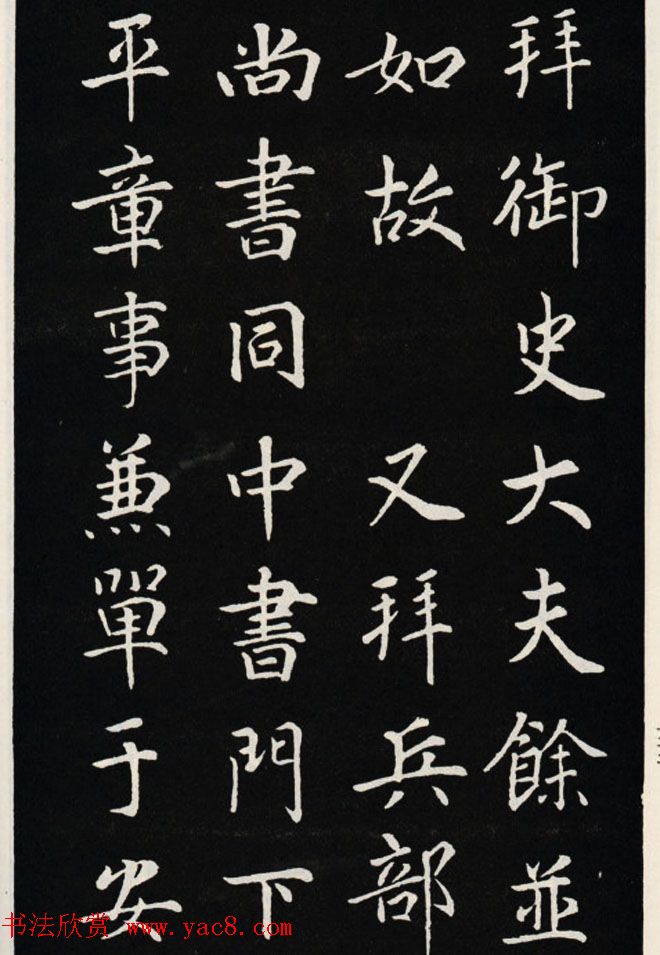 拜御史大夫餘並
如故 又拜兵部
尚書同中書門下
平章事兼單于安
书法欣赏 www.yac8.com